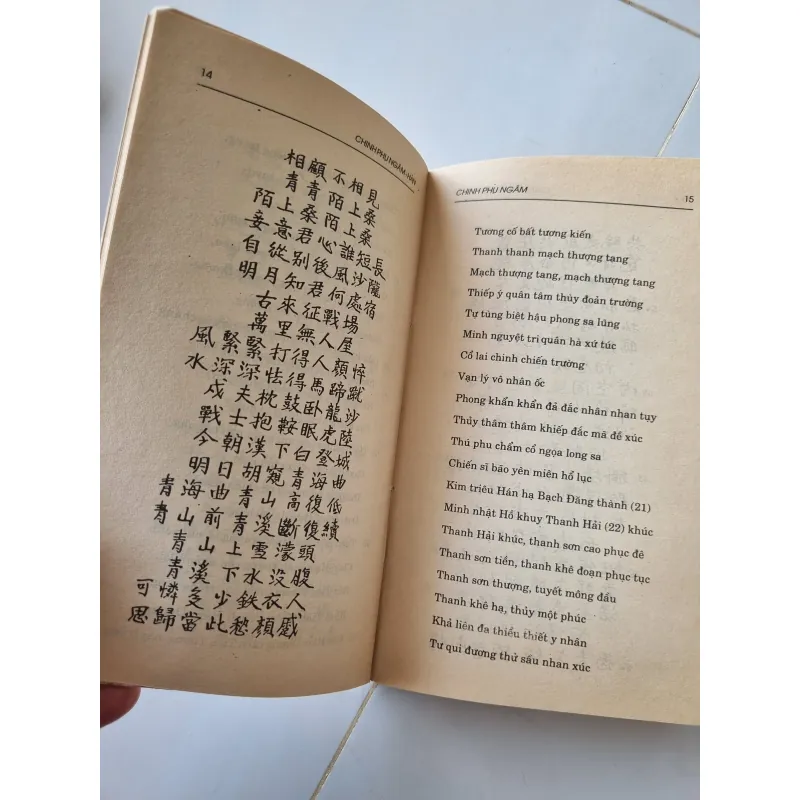 14
CHINH PHỤ NGÂM-HÁN
相顧不相見
青青陌上桑
陌上桑陌上桑
妾意君心誰短長
自從別後風沙隴
明月知君何處宿
古來征戰場
萬里無人屋
風緊緊打得人顏悴
水深深怯得馬蹄蹴
戍夫枕鼓臥龍沙
戰士抱鞍眠虎陸
今朝漢下白登城
明日胡窺青海曲
青海曲青山高復低
青山前青溪斷復續
青山上雪濛頭
青溪下水没腹
可憐多少鉄衣人
思歸當此愁顏慼
CHINH PHỤ NGÂM
15
Tương cố bất tương kiến
Thanh thanh mạch thượng tang
Mạch thượng tang, mạch thượng tang
Thiếp ý quân tâm thùy đoản trường
Tự tùng biệt hậu phong sa lũng
Minh nguyệt tri quân hà xứ túc
Cổ lai chinh chiến trường
Vạn lý vô nhân ốc
Phong khẩn khẩn đả đắc nhân nhan tụy
Thủy thâm thâm khiếp đắc mã đề xúc
Thú phu chẩm cổ ngọa long sa
Chiến sĩ bảo yên miên hổ lục
Kim triêu Hán hạ Bạch Đăng thành (21)
Minh nhật Hồ khuy Thanh Hải (22) khúc
Thanh Hải khúc, thanh sơn cao phục đê
Thanh sơn tiền, thanh khê đoạn phục tục
Thanh sơn thượng, tuyết mông đầu
Thanh khê hạ, thủy một phúc
Khả liên đa thiểu thiết y nhân
Tư qui đương thử sầu nhan xúc